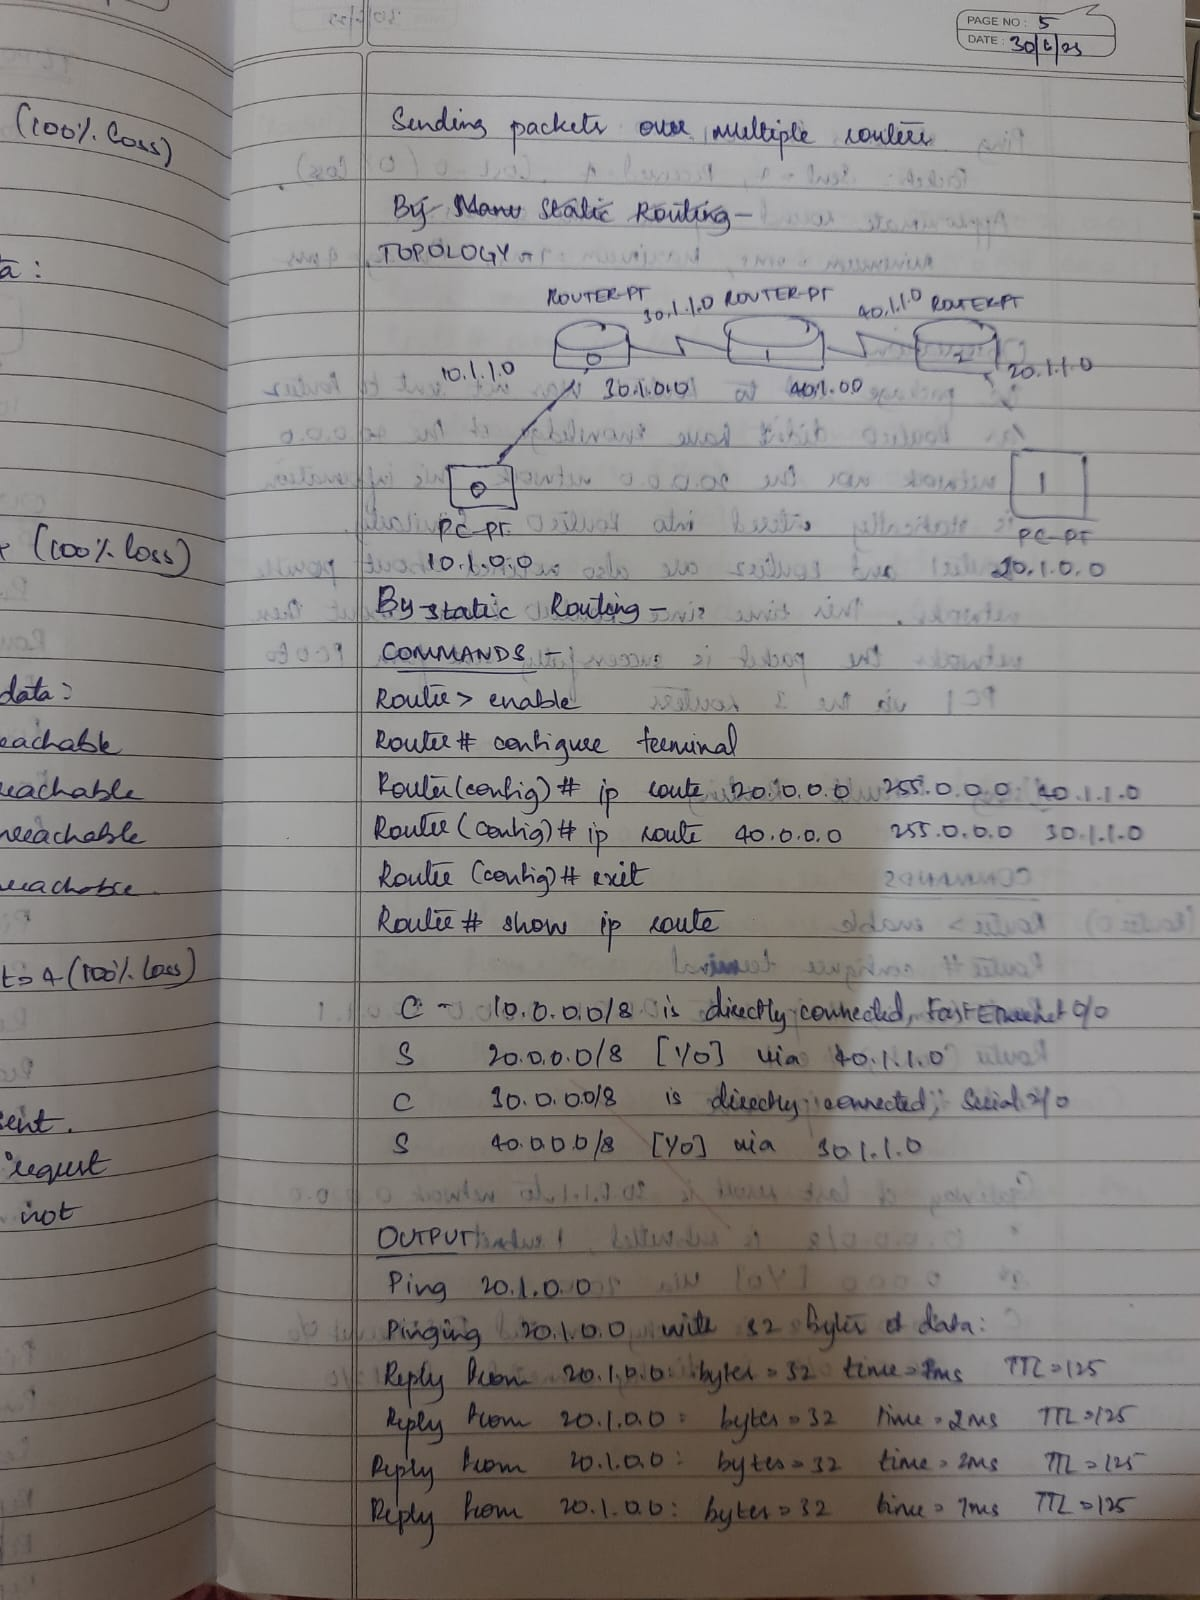 PAGE NO : 5
DATE : 30/6/23
(100% Loss)
a :
(100% loss)
data :
eachable
reachable
nreachable
reachable.
t = 4 (100% Loss)
sent.
request
not
Sending packets over multiple routers
By Manu Static Routing -
TOPOLOGY -
ROUTER-PT 30.1.1.0 ROUTER-PT 40.1.1.0 ROUTER-PT
0 1 2
10.1.1.0 30.1.0.0 40.1.0.0 20.1.1.0
0 1
PC-PT PC-PT
10.1.0.0 20.1.0.0
By static Routing -
COMMANDS -
Router > enable
Router # configure terminal
Router (config) # ip route 20.0.0.0 255.0.0.0 40.1.1.0
Router (config) # ip route 40.0.0.0 255.0.0.0 30.1.1.0
Router (config) # exit
Router # show ip route
C - 10.0.0.0/8 is directly connected, FastEthernet 0/0
S 20.0.0.0/8 [1/0] via 40.1.1.0
C 30.0.0.0/8 is directly connected, Serial 2/0
S 40.0.0.0/8 [1/0] via 30.1.1.0
OUTPUT
Ping 20.1.0.0
Pinging 20.1.0.0 with 32 bytes of data:
Reply from 20.1.0.0: bytes = 32 time = ms TTL = 125
Reply from 20.1.0.0 : bytes = 32 time = 2ms TTL = 125
Reply from 20.1.0.0 : bytes = 32 time = 2ms TTL = 125
Reply from 20.1.0.0 : bytes = 32 time = 7ms TTL = 125